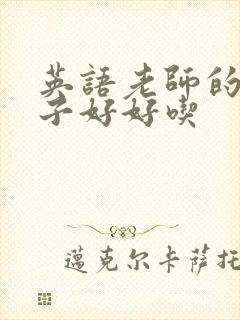 英語老師的
子好好喫
邁克尔卡薩托